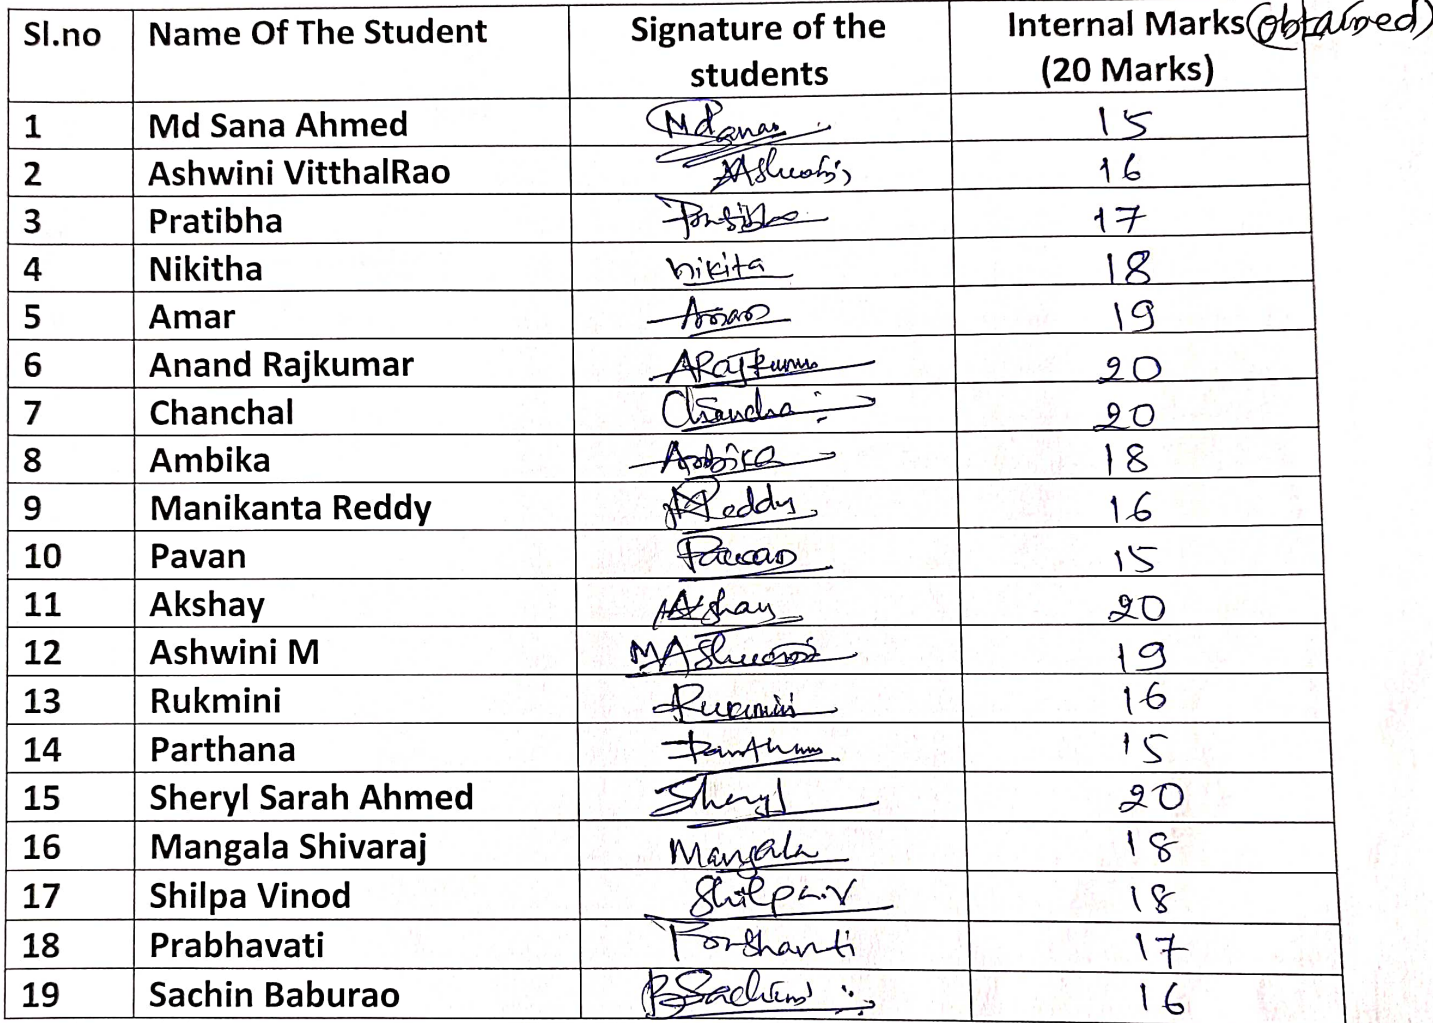 Sl.no Name Of The Student Signature of the students Internal Marks (obtained) (20 Marks)
1 Md Sana Ahmed 15
2 Ashwini VitthalRao 16
3 Pratibha 17
4 Nikitha nikita 18
5 Amar 19
6 Anand Rajkumar 20
7 Chanchal 20
8 Ambika Ambika 18
9 Manikanta Reddy Reddy 16
10 Pavan 15
11 Akshay Akshay 20
12 Ashwini M 19
13 Rukmini 16
14 Parthana 15
15 Sheryl Sarah Ahmed Sheryl 20
16 Mangala Shivaraj Mangala 18
17 Shilpa Vinod Shilpa.V 18
18 Prabhavati 17
19 Sachin Baburao 16